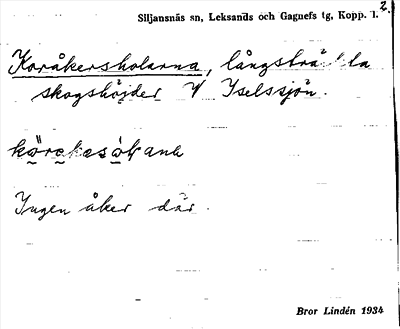 2.
Siljansnäs sn, Leksands och Gagnefs tg, Kopp. l.
Koråkersholarna, långsträckta
skogshöjder V Iselssjön.
Ingen åker där.
Bror Lindén 1934